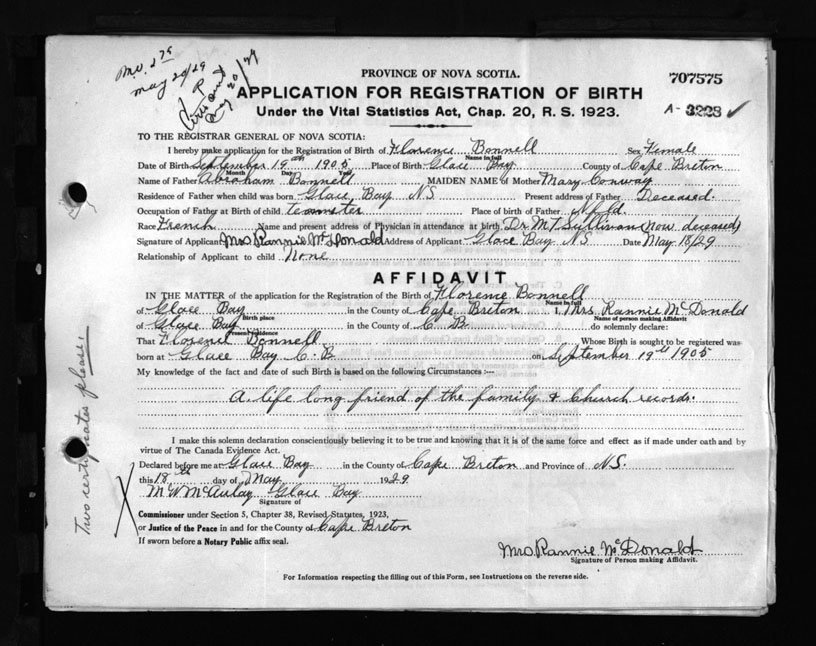 May 20/29
PROVINCE OF NOVA SCOTIA.
707575
APPLICATION FOR REGISTRATION OF BIRTH
A- 3228 ✓
Under the Vital Statistics Act, Chap. 20, R. S. 1923.
TO THE REGISTRAR GENERAL OF NOVA SCOTIA:
I hereby make application for the Registration of Birth of Florence Bonnell Sex Female
Name in full
Date of Birth September 19th 1905 Place of Birth Glace Bay County of Cape Breton
Month Day Year
Name of Father Abraham Bonnell MAIDEN NAME of Mother Mary Conway
Residence of Father when child was born Glace Bay N S Present address of Father Deceased.
Occupation of Father at Birth of child teamster Place of birth of Father Nfld.
Race French Name and present address of Physician in attendance at birth Dr. M T Sullivan (now deceased)
Signature of Applicant Mrs Rannie McDonald Address of Applicant Glace Bay N.S. Date May 18/29
Relationship of Applicant to child None
AFFIDAVIT
IN THE MATTER of the application for the Registration of the Birth of Florence Bonnell
Name in full
of Glace Bay in the County of Cape Breton I, Mrs Rannie McDonald
Birth place Name of person making Affidavit
of Glace Bay in the County of C B do solemnly declare:
Present residence
That Florence Bonnell Whose Birth is sought to be registered was
born at Glace Bay C. B. on September 19th 1905
My knowledge of the fact and date of such Birth is based on the following Circumstances :—
A life long friend of the family & Church records.
I make this solemn declaration conscientiously believing it to be true and knowing that it is of the same force and effect as if made under oath and by
virtue of The Canada Evidence Act.
Declared before me at Glace Bay in the County of Cape Breton and Province of N.S.
this 18th day of May 1929
M W McAulay Glace Bay
Signature of
Commissioner under Section 5, Chapter 38, Revised Statutes, 1923,
or Justice of the Peace in and for the County of Cape Breton
If sworn before a Notary Public affix seal.
Mrs Rannie McDonald
Signature of Person making Affidavit.
For Information respecting the filling out of this Form, see Instructions on the reverse side.
Two certificates please!